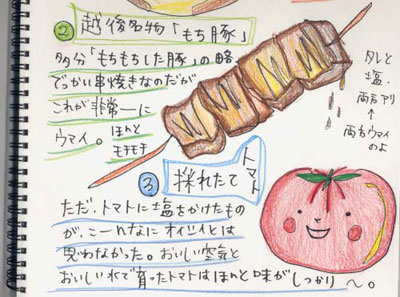 ② 越後名物「もち豚」
多分「もちもちした豚」の略
でっかい串焼きなのだが
これが非常ーに
ウマイ。ほんと
モチモチ
タレと
塩、
両方アリ
↑
両方ウマイ
のよ
③ 採れたて トマト
ただ、トマトに塩をかけたもの
が、こーんなにオイシイとは
思わなかった。おいしい空気と
おいしい水で育ったトマトはほんと味がしっかり〜。